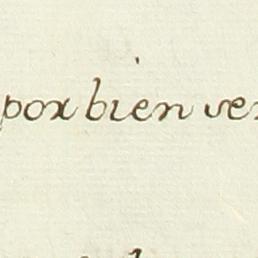 pox bien ven